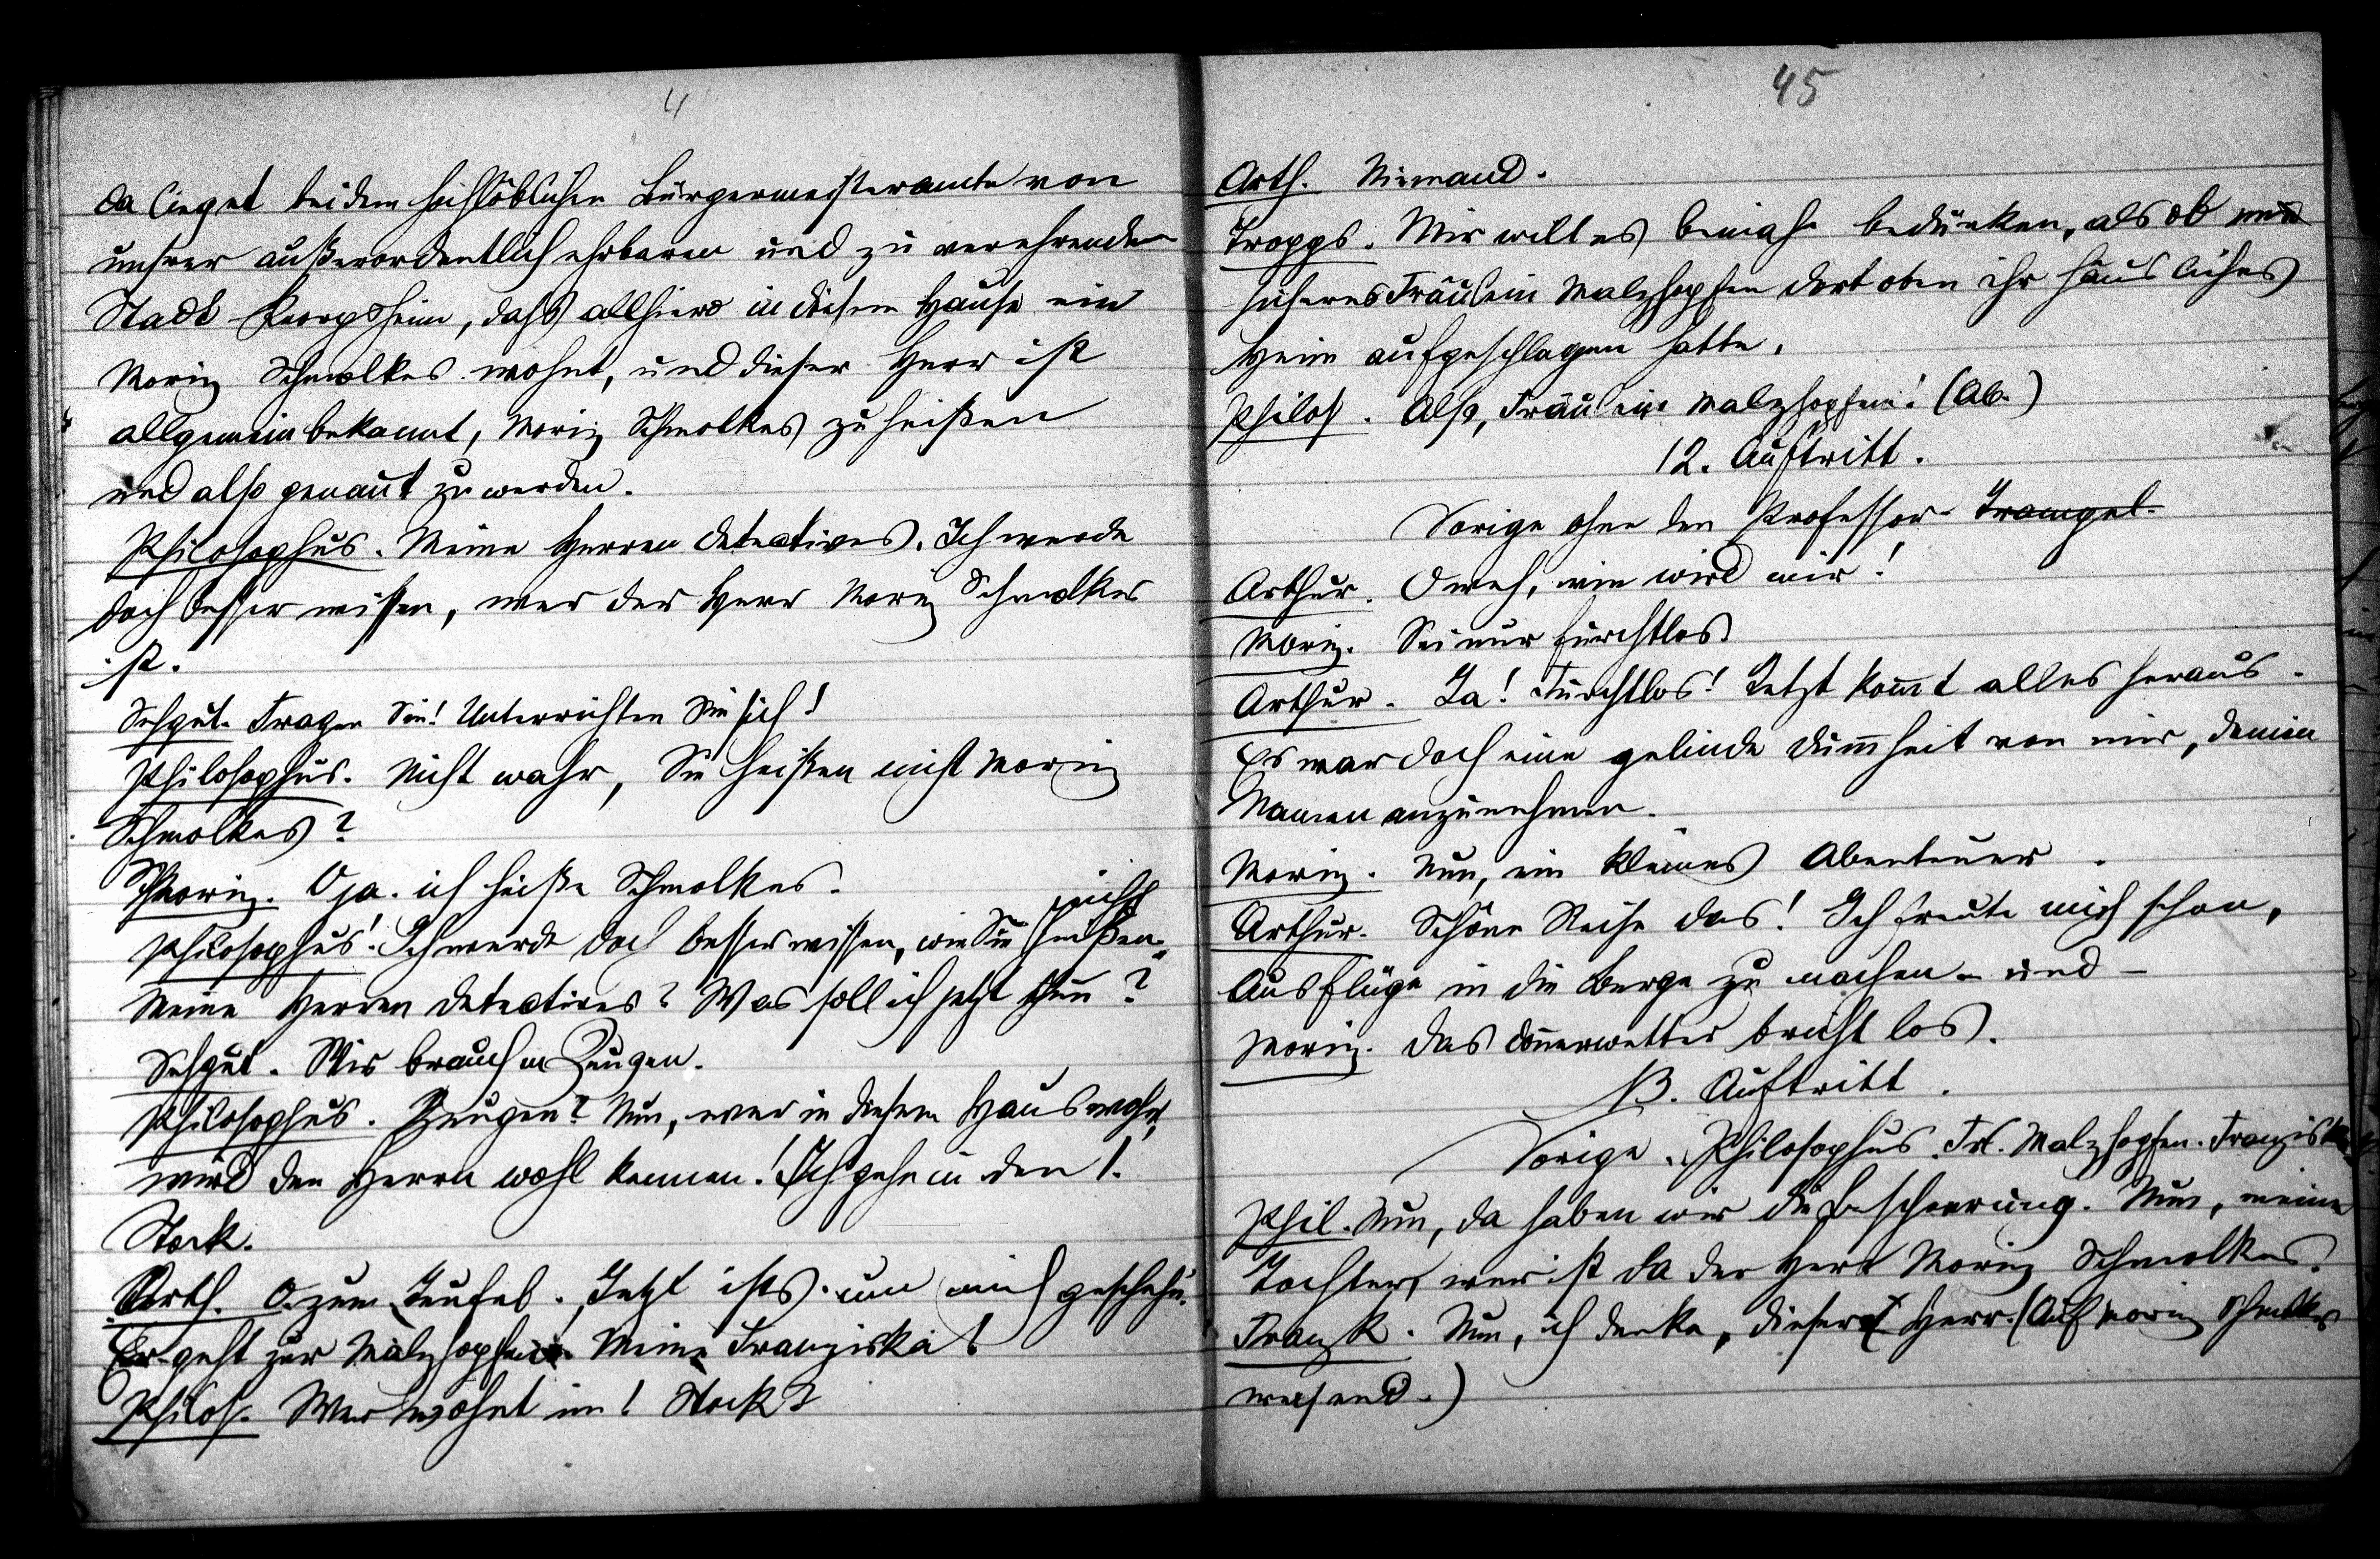 4
da lieget bei dem hochlöblichen Bürgermeisteramte von
unserer außerordentlich ehrbaren und zu verehrenden
Stadt Georgsheim, dass allhiero in diesem Hause ein
Moriz Schmolkes wohnt, und dieser Herr ist
allgemein bekannt, Moriz Schmolkes zu heißen
und also genannt zu werden.
Philosophus. Meine Herren Detectives. Ich werde
doch besser wissen, wer der Herr Moriz Schmolkes
ist.
Sehgut. Fragen Sie! Unterrichten Sie sich!
Philosophus. Nicht wahr, Sie heißen nicht Moriz
Schmolkes?
Moriz. O ja. ich heiße Schmolkes.
Philosophus! Ich werde doch besser wissen, wie Sie nicht heißen.
Meine Herren Detectives? Was soll ich jetzt thun?
Sehgut. Wir brauchen Zeugen.
Philosophus. Zeugen? Nun, wer in diesem Haus wohnt,
wird den Herrn wohl kennen! Ich gehe in den 1.
Stock.
Arth. O zum Teufel. Jetzt ists um mich geschehn.
Er geht zur Malzhopfen. Meine Franziska!
Philos. Wer wohnt im 1 Stock?
45
Arth. Niemand.
Tropps. Mir will es beinahe bedünken, als ob
sicheres Fräulein Malzhopfen dort oben ihr häusliches
Heim aufgeschlagen hatte.
Philos. Also, Fräulein Malzhopfen! (Ab.)
12. Auftritt.
Vorige ohne den Professor Trampel.
Arthur. O weh, wie wird mir!
Moriz. Sei nur furchtlos
Arthur. Ja! Furchtlos! Jetzt kommt alles heraus.
Es war doch eine gelinde Dummheit von mir, deinen
Namen anzunehmen.
Moriz. Nun, ein kleines Abenteuer.
Arthur. Schöne Reise das! Ich freute mich schon,
Ausflüge in die Berge zu machen - und -
Moriz. Das Donnerwetter bricht los.
13. Auftritt.
Vorige. Philosophus. Frl. Malzhopfen. Franziska
Phil. Nun, da haben wir die Bescheerung. Nun, meine
Tochter, wer ist da der Herr Moriz Schmolkes.
Franzk. Nun, ich denke, dieser Herr. (Auf Moriz Schmolkes
weisend.)